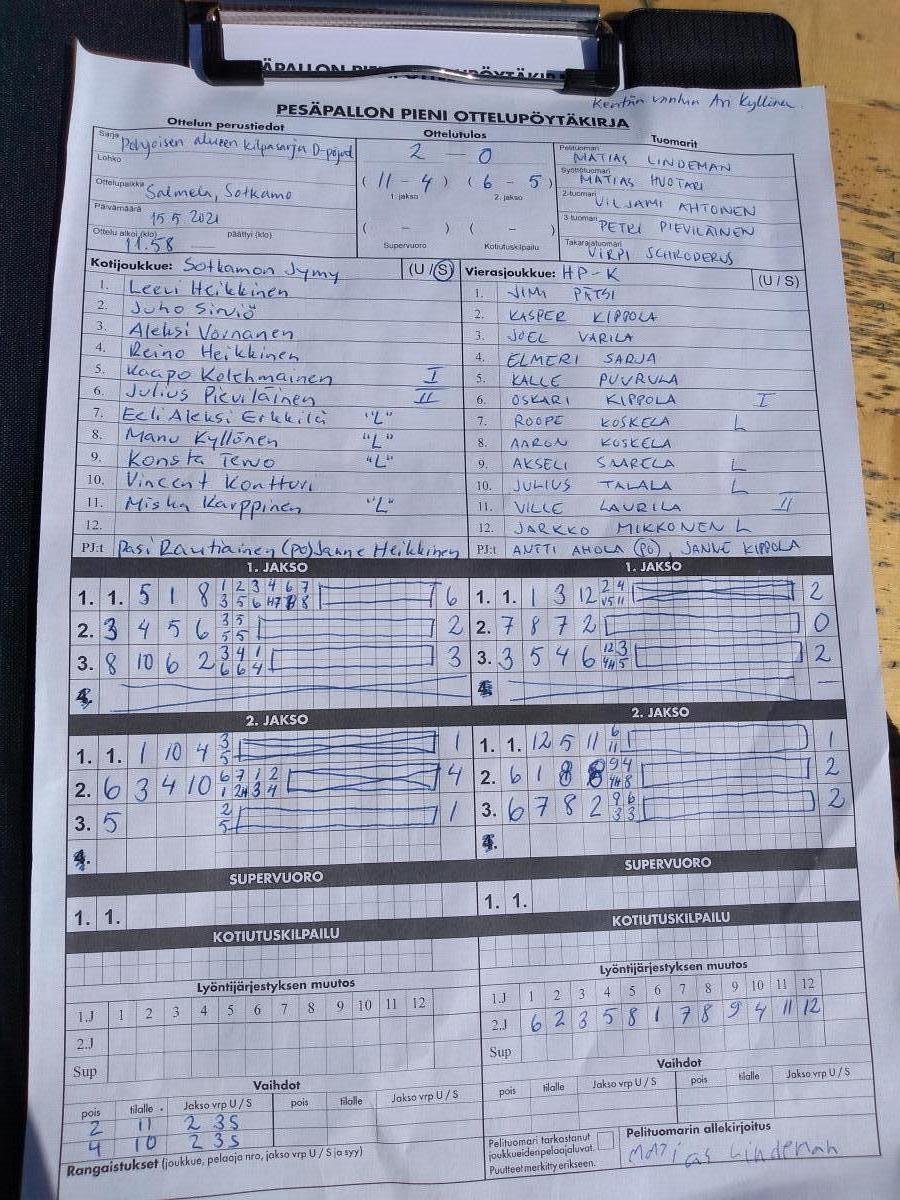 Kentän vanhin Ari Kyllönen
PESÄPALLON PIENI OTTELUPÖYTÄKIRJA
Ottelun perustiedot
Sarja Pohjoisen alueen kilpasarja D-pojat
Lohko
Ottelupaikka Salmela, Sotkamo
Päivämäärä 15.5.2021
Ottelu alkoi (klo) 11.58 päättyi (klo)
Ottelutulos
2 - 0
( 11 - 4 ) ( 6 - 5 )
1. jakso 2. jakso
( - ) ( - )
Supervuoro Kotiutuskilpailu
Tuomarit
Pelituomari MATIAS LINDEMAN
Syöttötuomari MATIAS HUOTARI
2-tuomari VILJAMI AHTONEN
3-tuomari PETRI PIEVILÄINEN
Takarajatuomari VIRPI SCHRODERUS
Kotijoukkue: Sotkamon Jymy (U / S)
1. Leevi Heikkinen
2. Juho Sirviö
3. Aleksi Voinanen
4. Reino Heikkinen
5. Kaapo Kolehmainen I
6. Julius Pieviläinen II
7. Eeli Aleksi Erkkilä "L"
8. Manu Kyllönen "L"
9. Konsta Tervo "L"
10. Vincent Kontturi
11. Miska Karppinen "L"
12.
PJ:t Pasi Rautiainen (po) Janne Heikkinen
Vierasjoukkue: HP-K (U / S)
1. JIMI PÄTSI
2. KASPER KIPPOLA
3. JOEL VARILA
4. ELMERI SARJA
5. KALLE PUURULA
6. OSKARI KIPPOLA I
7. ROOPE KOSKELA L
8. AARON KOSKELA
9. AKSELI SAARELA L
10. JULIUS TALALA L
11. VILLE LAURILA II
12. JARKKO MIKKONEN L
PJ:t ANTTI AHOLA (PO), JANNE KIPPOLA
1. JAKSO
1. 1. 5 1 8 6
2. 3 4 5 6 3 5 5 5 2
3. 8 10 6 2 3 4 1 6 6 4 3
4.
1. JAKSO
1. 1. 1 3 12 2
2. 7 8 7 2 0
3. 3 5 4 6 2
4. –
2. JAKSO
1. 1. 1 10 4 3 5 1
2. 6 3 4 10 4
3. 5 2 5 1
4.
2. JAKSO
1. 1. 12 5 11 6 11 1
2. 6 1 8 2
3. 6 7 8 2 9 6 3 3 2
4.
SUPERVUORO
1. 1.
SUPERVUORO
1. 1.
KOTIUTUSKILPAILU
KOTIUTUSKILPAILU
Lyöntijärjestyksen muutos
1.J 1 2 3 4 5 6 7 8 9 10 11 12
2.J
Sup
Lyöntijärjestyksen muutos
1.J 1 2 3 4 5 6 7 8 9 10 11 12
2.J 6 2 3 5 8 1 7 8 9 4 11 12
Sup
Vaihdot
pois tilalle Jakso vrp U / S pois tilalle Jakso vrp U / S
2 11 2 3S
4 10 2 3S
Vaihdot
pois tilalle Jakso vrp U / S pois tilalle Jakso vrp U / S
Rangaistukset (joukkue, pelaaja nro, jakso vrp U / S ja syy)
Pelituomari tarkastanut
joukkueiden pelaajaluvat.
Puutteet merkitty erikseen.
Pelituomarin allekirjoitus
Matias Lindeman